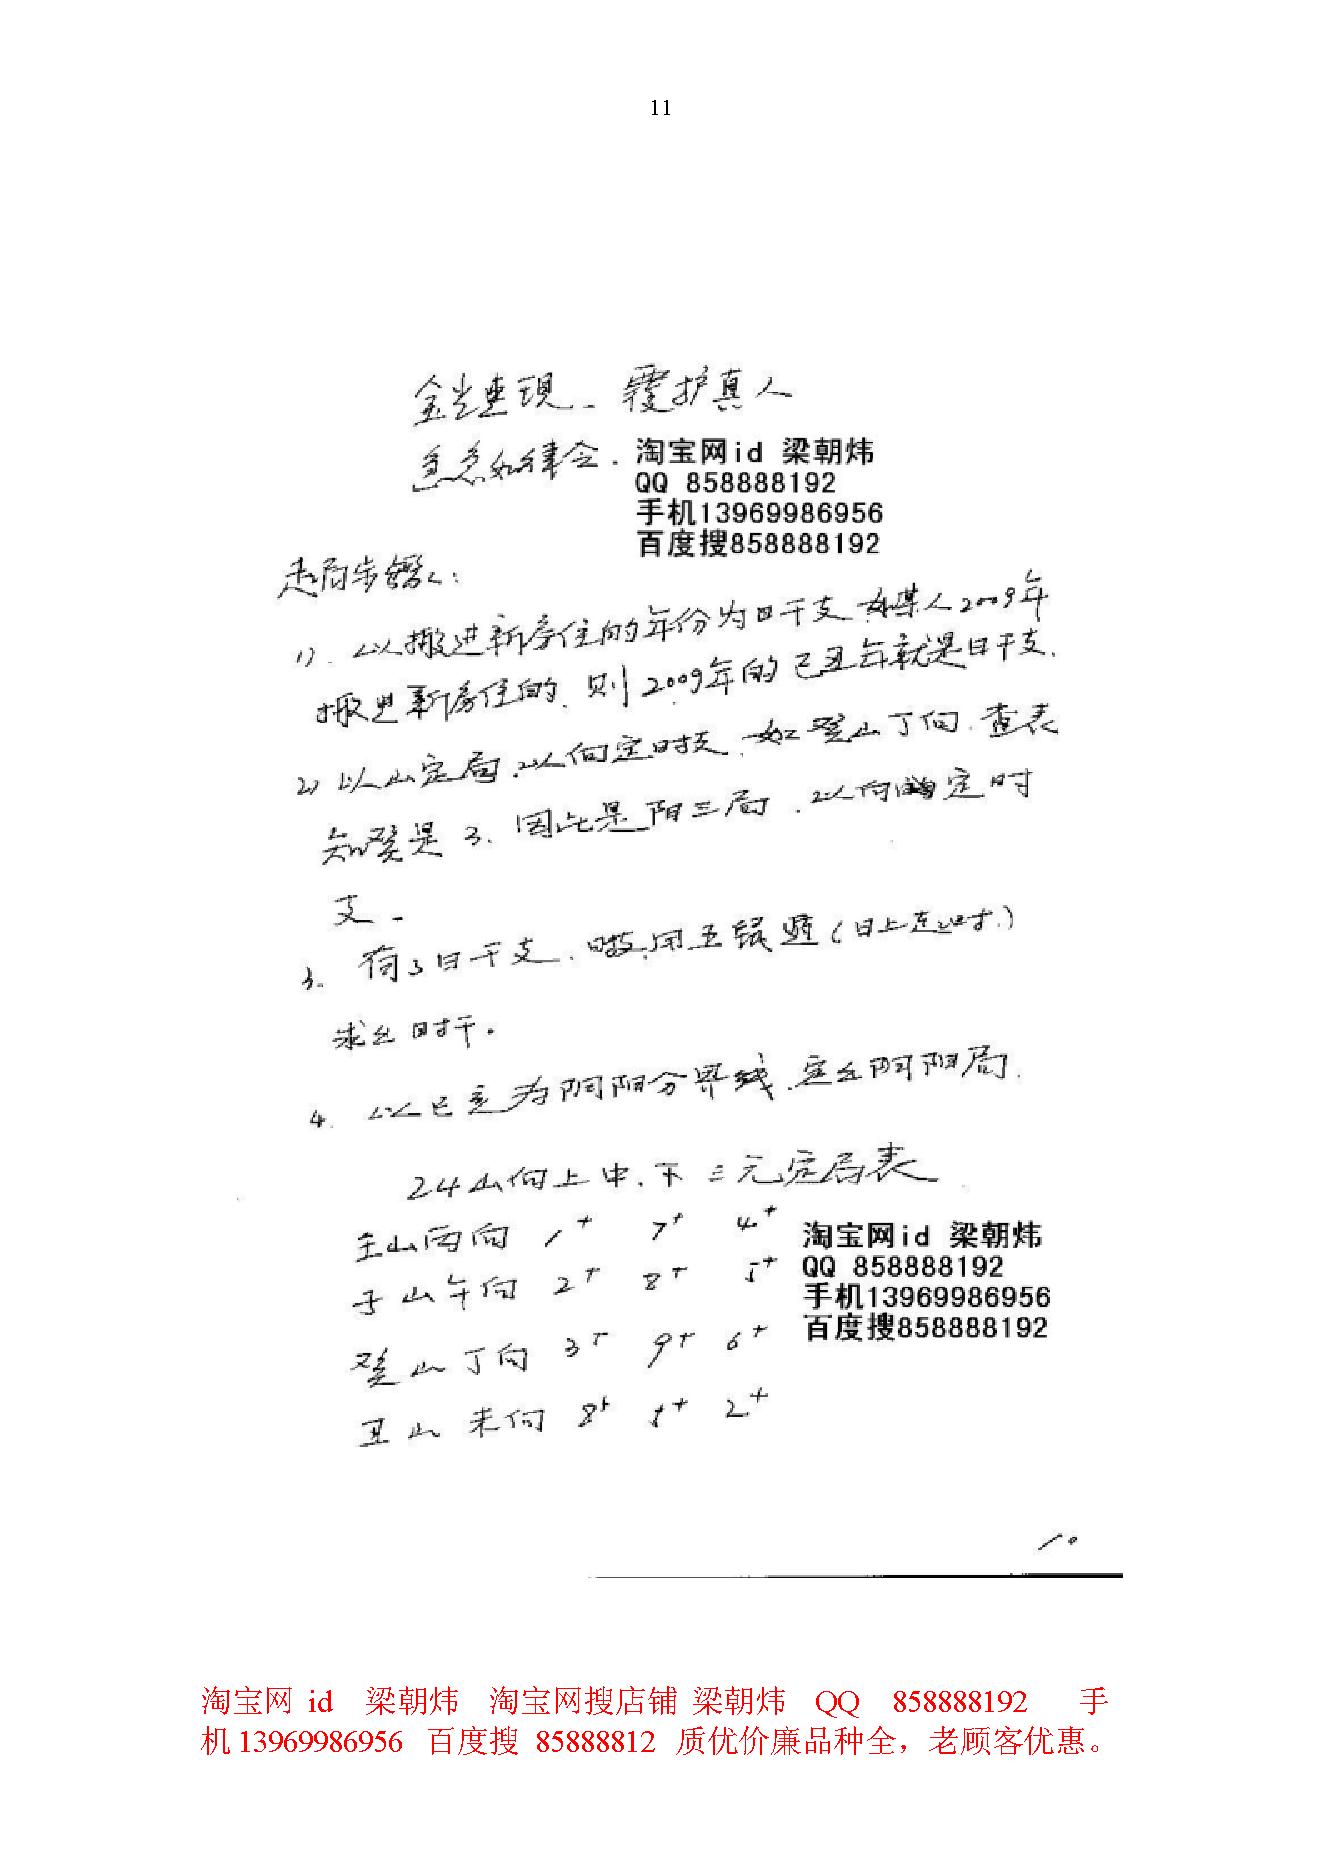 11
金光速现. 覆护真人
急急如律令.
淘宝网id 梁朝炜
QQ 858888192
手机13969986956
百度搜858888192
起局步骤:
1). 以搬进新房住的年份为日干支 如某人2009年
搬进新房住的. 则2009年的己丑年就是日干支.
2) 以山定局.以向定时支. 如癸山丁向. 查表
知癸是3. 因此是阳三局. 以向确定时
支.
3. 有了日干支. 用五鼠遁(日上起时.)
求出时干。
4. 以巳亥为阴阳分界线. 定出阴阳局.
24山向上中.下三元定局表
壬山丙向 1+ 7+ 4+
子山午向 2+ 8+ 5+
癸山丁向 3+ 9+ 6+
丑山未向 8+ 1+ 2+
淘宝网id 梁朝炜
QQ 858888192
手机13969986956
百度搜858888192
10
淘宝网 id 梁朝炜 淘宝网搜店铺 梁朝炜 QQ 858888192 手
机13969986956 百度搜 85888812 质优价廉品种全，老顾客优惠。